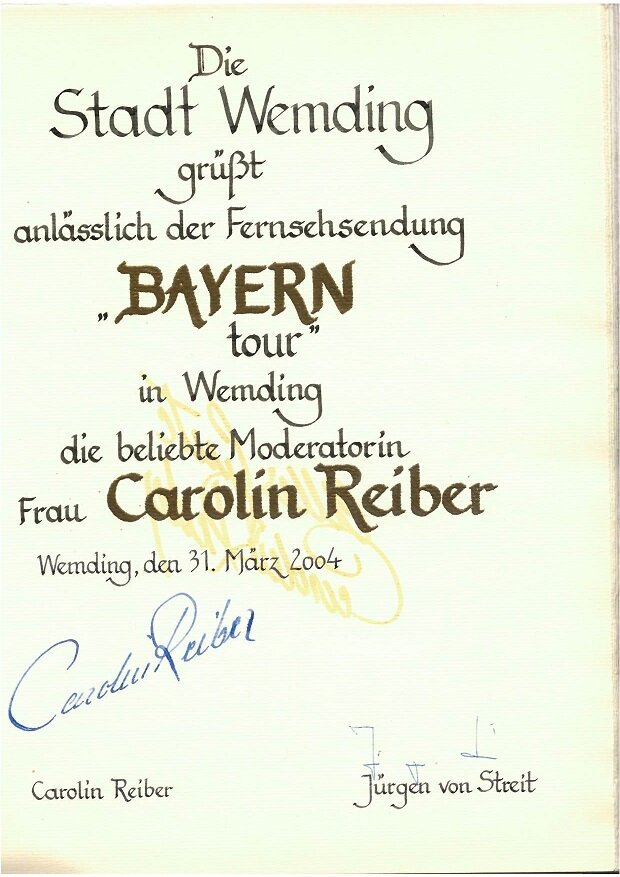 Die
Stadt Wemding
grüßt
anlässlich der Fernsehsendung
„BAYERN
tour”
in Wemding
die beliebte Moderatorin
Frau Carolin Reiber
Wemding, den 31. März 2004
Carolin Reiber
Carolin Reiber
Jürgen von Streit